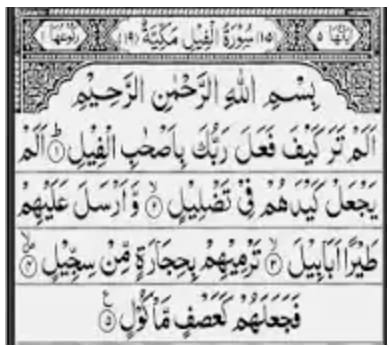 اٰیَاتُهَا ۵ (۱۰۵) سُوْرَةُ الْفِیْلِ مَكِّیَّةٌ (۱۹) رُكُوْعُهَا ۱
بِسْمِ اللّٰهِ الرَّحْمٰنِ الرَّحِیْمِ
اَلَمْ تَرَ كَیْفَ فَعَلَ رَبُّكَ بِاَصْحٰبِ الْفِیْلِ ۱ؕ اَلَمْ
یَجْعَلْ كَیْدَهُمْ فِیْ تَضْلِیْلٍ ۲ۙ وَّ اَرْسَلَ عَلَیْهِمْ
طَیْرًا اَبَابِیْلَ ۳ۙ تَرْمِیْهِمْ بِحِجَارَةٍ مِّنْ سِجِّیْلٍ ۴
فَجَعَلَهُمْ كَعَصْفٍ مَّاْكُوْلٍ ۵